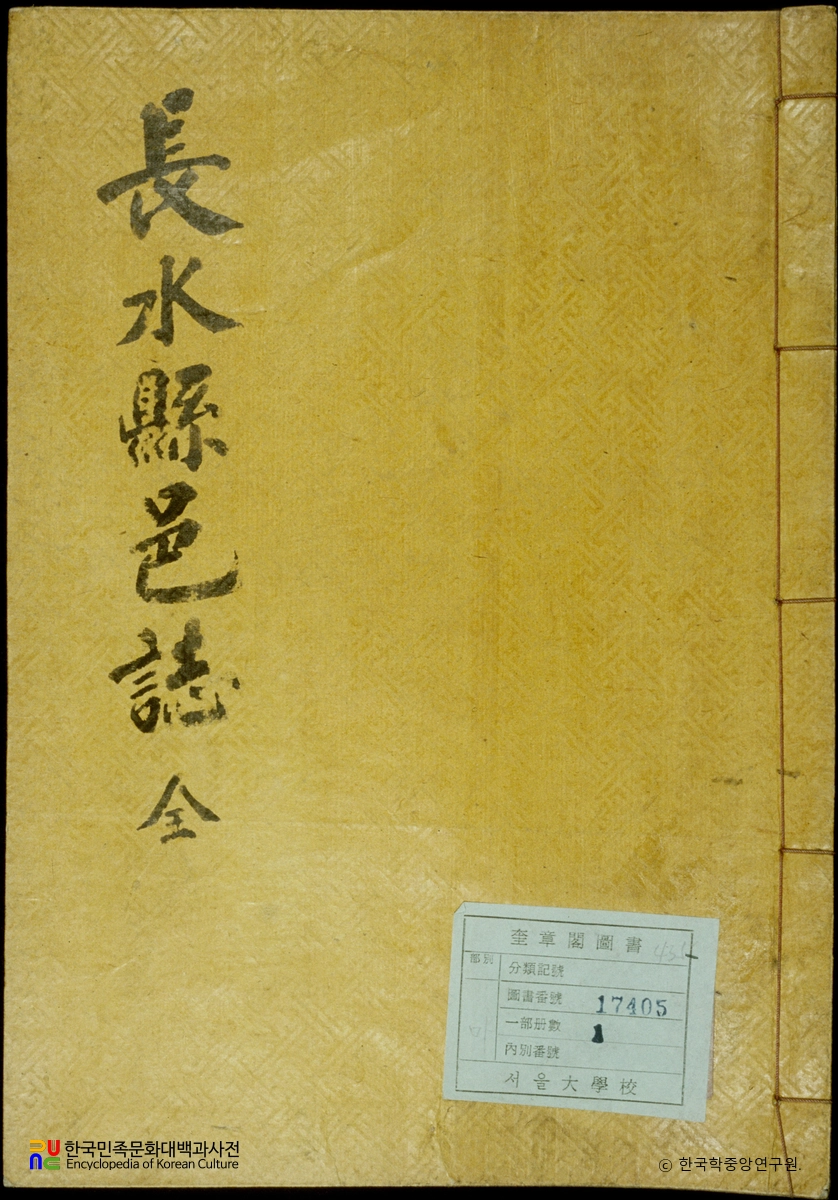 長水縣邑誌 全
奎章閣圖書
部別
分類記號
圖書番號 17405
一部册數 1
內別番號
서울大學校
한국민족문화대백과사전
Encyclopedia of Korean Culture
© 한국학중앙연구원.